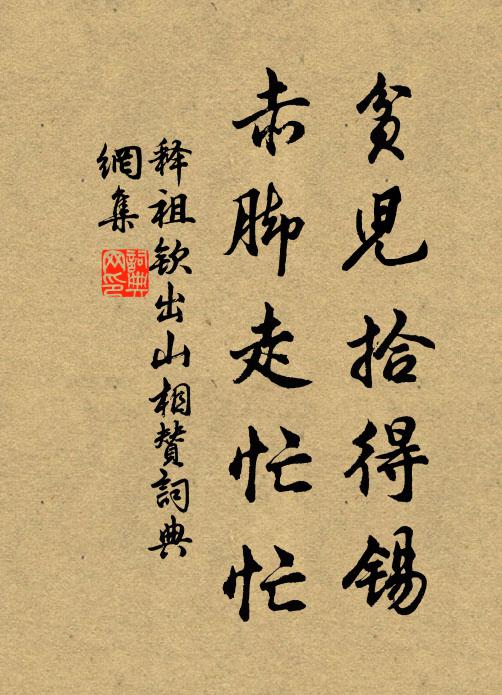 贫児拾得锡
赤脚走忙忙
释祖钦出山相赞词典
網集
詞典
网印